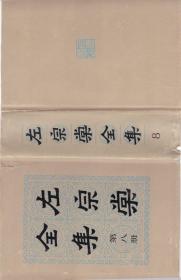 左宗棠全集 8
左宗棠
全集
第八册